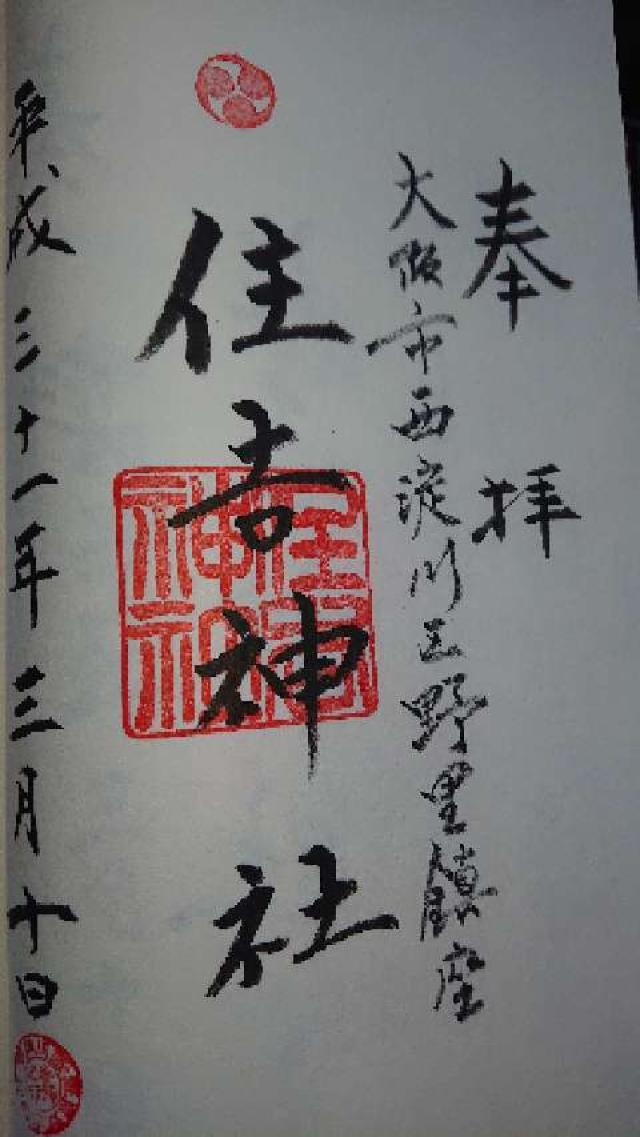 奉拝
大阪市西淀川区野里鎮座
住吉神社
住吉神社
平成三十一年三月十日